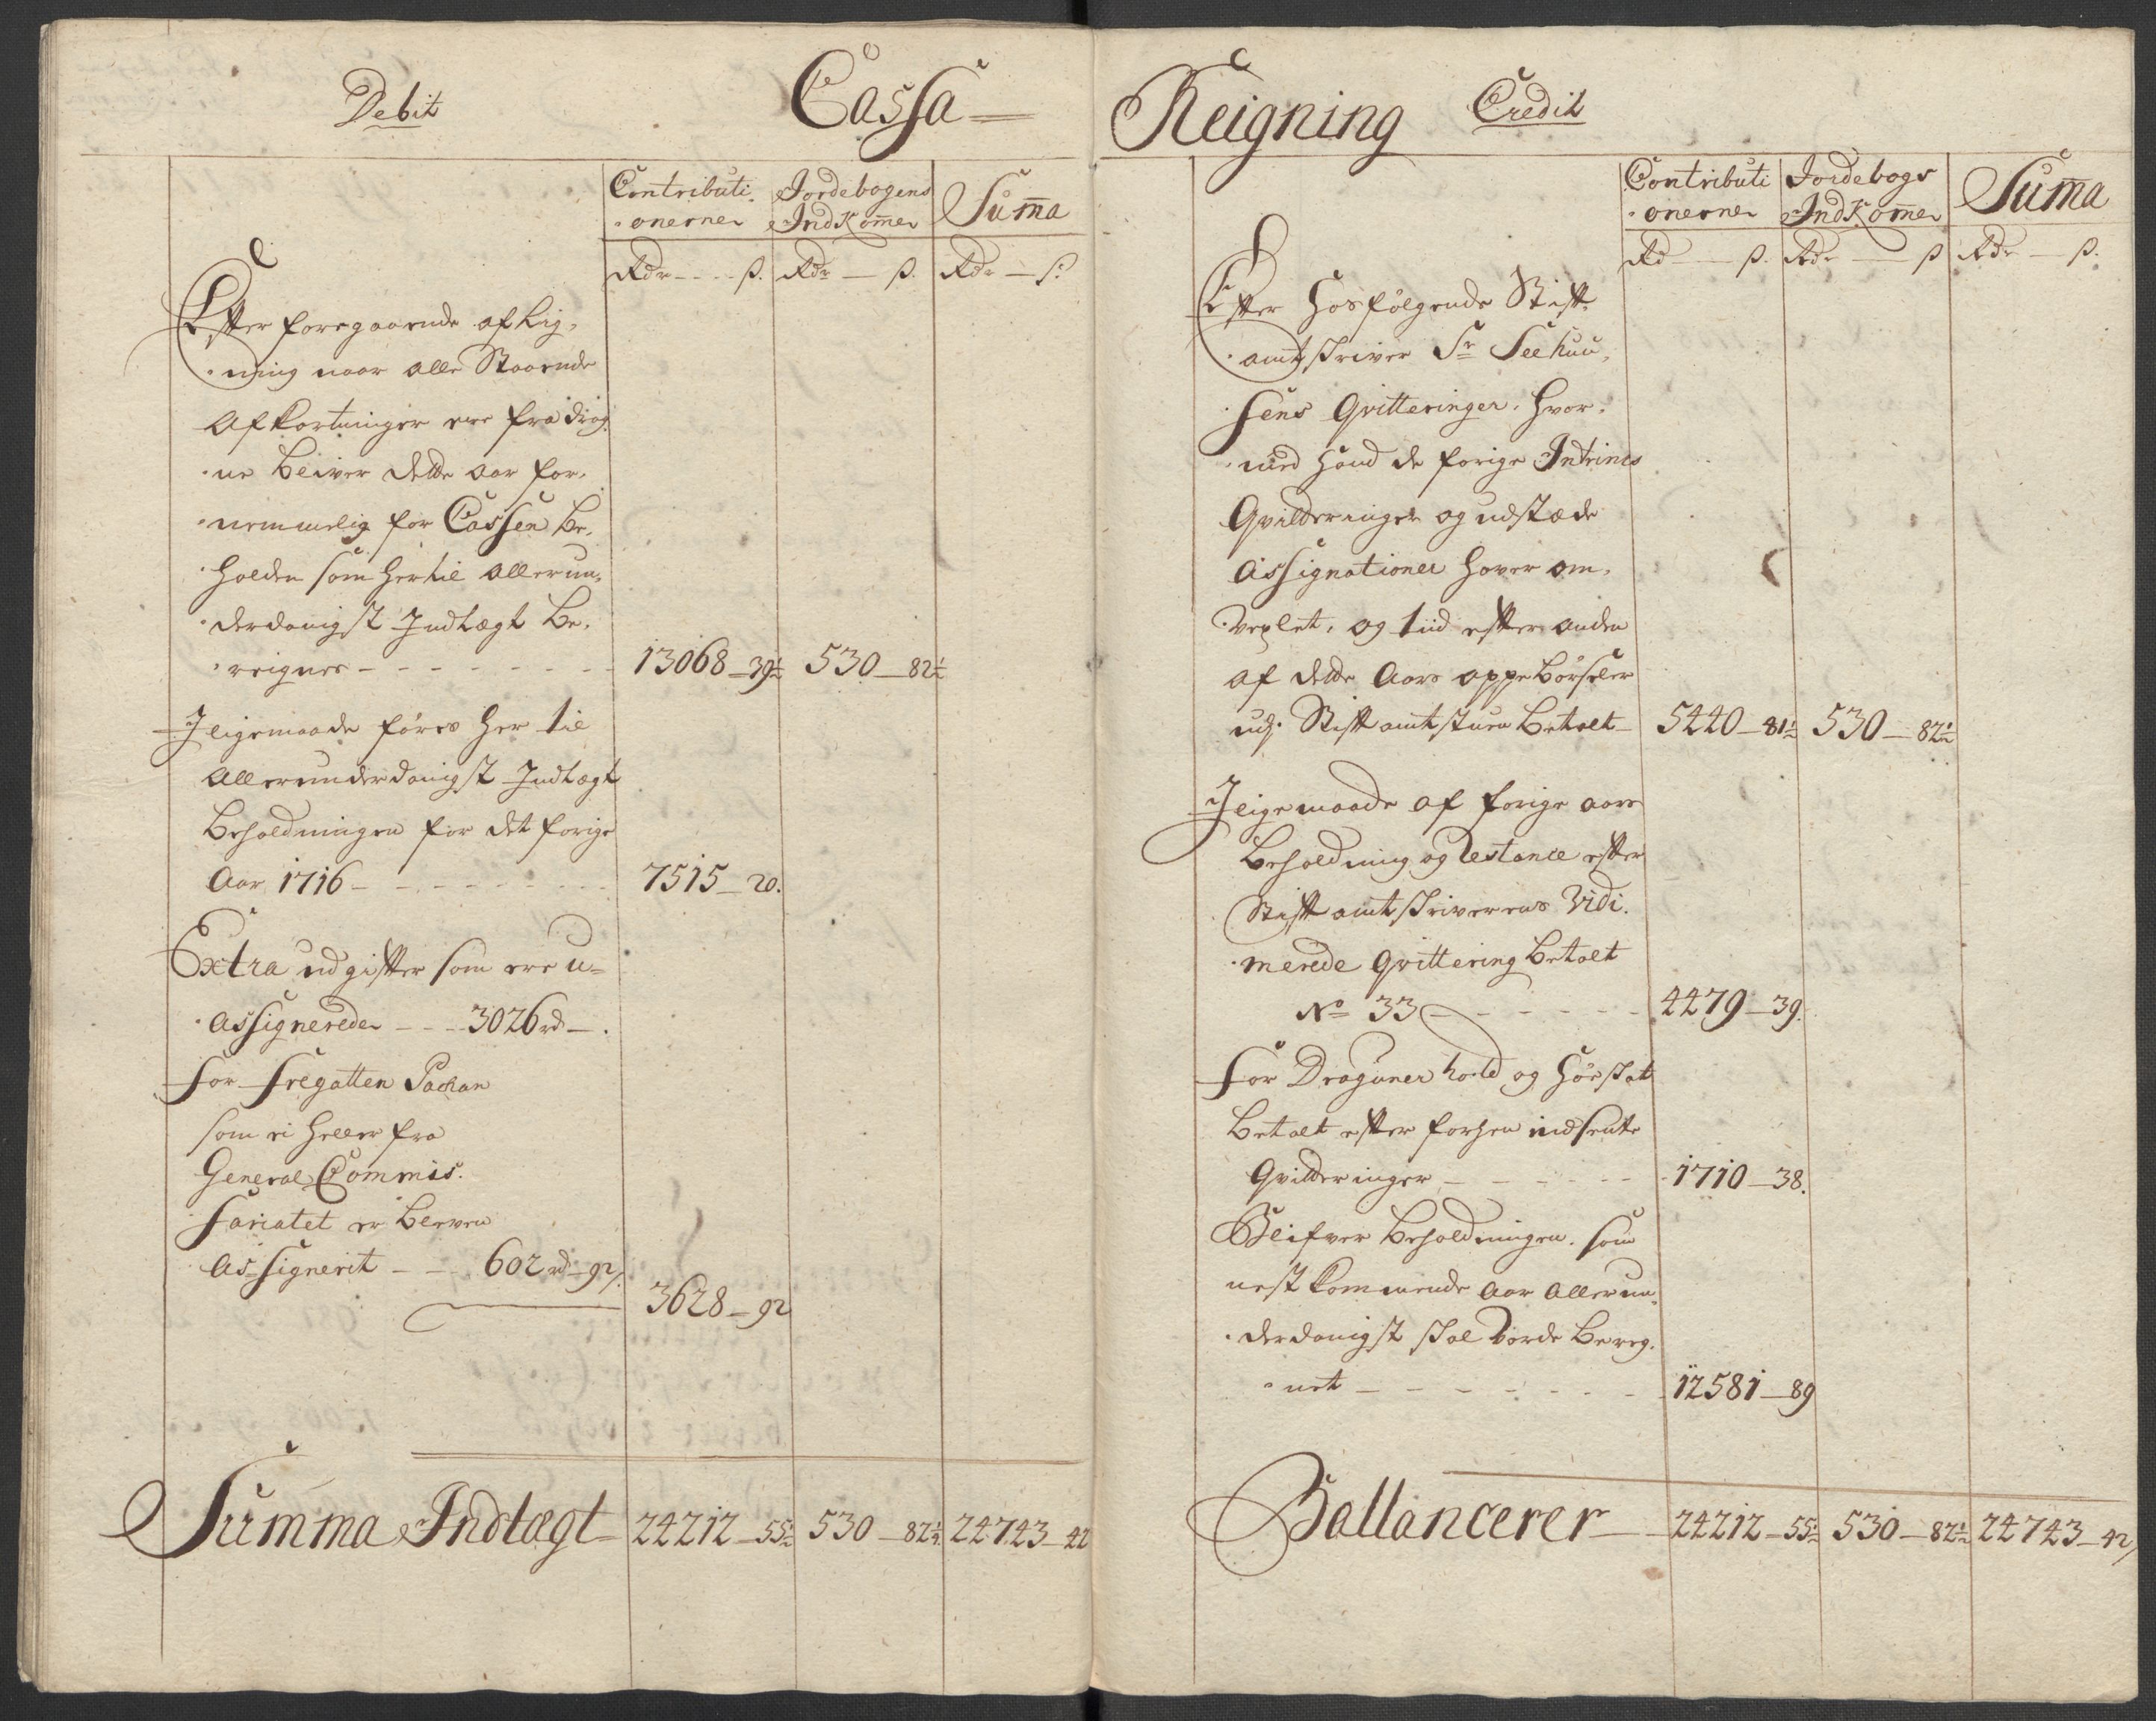 Debit
Cassa
Contributi
onerne
Jordebogens
Indkomer
Suma
Rdr ß. Rdr ß. Rdr ß
Efter foregaaende afLig,
ning naar alle Staaende
Afkortninger ere fradrag
ne bliver dette aar for,
nemmelig for Cassen be,
holden som hertil allerun,
derdanigst Indtægt be,
reignes - - - 13068 39½ 530 82½
I ligemaade føres her til
allerunderdanigst Indtægt
beholdningen for det forige
Aar 1716 - - - 7515 20.
Extra udgifter som ere u=
assignerede - - 3026 rd - .
For Fregatten Packan
som ei heller fra
General Commis.
sariatet er bleven
assignerit - - 602 rd 92
3628 92
Summa Indtægt 24212 55½ 530 82½ 24743 42
Reigning
Credit
Contributi
onerne
Jordebogs
Indkomer
Suma
Rd ß. Rdr ß Rdr ß.
Efter hosfølgende Stift
amtskriver Sr Seehuu,
sens Qvitteringer, hvor,
med hand de forige Intrims
Qvitteringer og udstæde
Assignationer haver om,
vexlet, og tiid efter anden
af dette Aars oppebørseler
udj Stiftamtstuen betalt 5440 81½ 530 82½
I lige maade af forige aars
beholdning og Restance efter
Stiftamtskriverens Vidi.
merede Qvittering betalt
No 33 - - - 4479 39.
For Draguner hold og Hørskat
betalt efter forhen indsente
Qvitteringer - - - 1710 38.
Blifver beholdningen, som
nest kommende aar allerun,
derdanigst skal vorde bereg,
net - - - 12581 89
Ballancerer 24212 55½ 530 82½ 24743 42